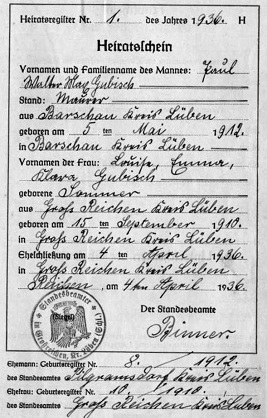 Heiratsregister Nr. 1. des Jahres 1936. H
Heiratsschein
Vornamen und Familienname des Mannes: Paul
Walter Max Gubisch
Stand: Maurer
aus Barschau Kreis Lüben
geboren am 5ten Mai 1912.
in Barschau Kreis Lüben.
Vornamen der Frau: Louise, Emma,
Klara Gubisch
geborene Sommer
aus Groß Reichen Kreis Lüben
geboren am 15ten September 1910.
in Groß Reichen Kreis Lüben
Eheschließung am 4ten April 1936.
in Groß Reichen Kreis Lüben
, am 4ten April 1936.
Standesbeamter
(Siegel)
Der Standesbeamte
Binner.
Ehemann: Geburtsregister Nr. 8. / 1912.
des Standesamtes Pilgramsdorf Kreis Lüben
Ehefrau: Geburtsregister Nr. 10. / 1910.
des Standesamtes Groß Reichen Kreis Lüben